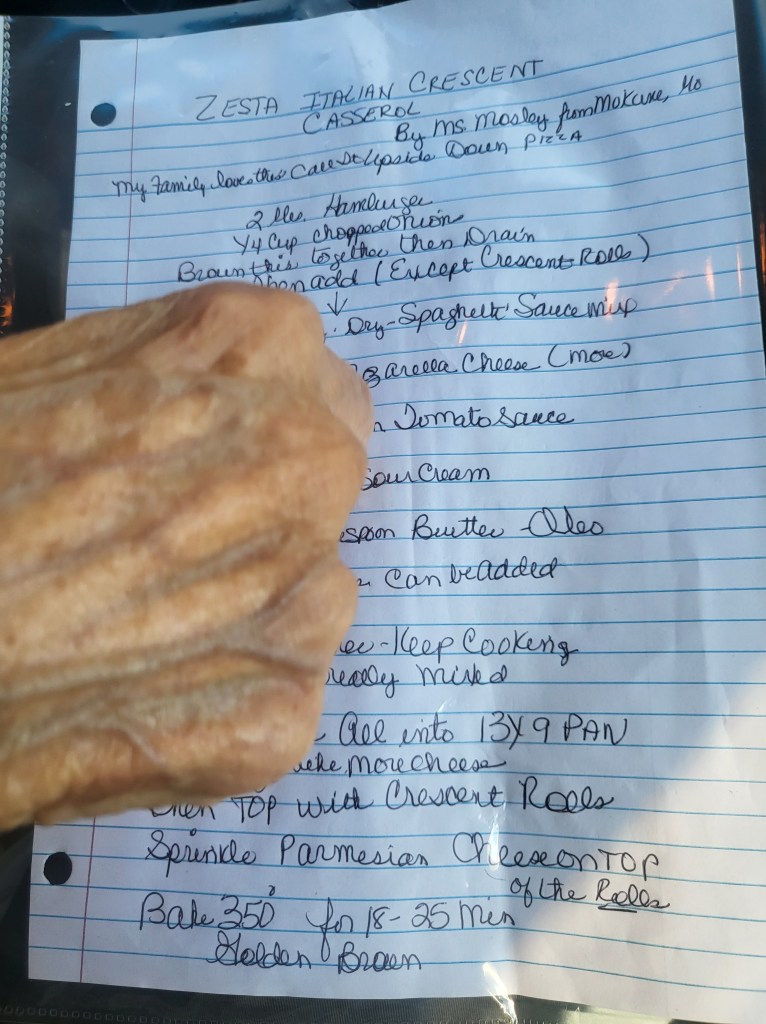 ZESTA ITALIAN CRESCENT
CASSEROL
By Ms. Mosley from Mokane, Mo
My Family loves this Call it Upside Down PIZZA
2 lbs. Hamburger
1/4 Cup chopped Onion
Brown this together then Drain
then add (Except Crescent Rolls)
Dry-Spaghetti Sauce mix
zarella Cheese (more)
n Tomato sauce
Sour Cream
espoon Butter Oleo
Can be added
Keep Cooking
really mixed
All into 13x9 PAN
more cheese
then TOP with Crescent Rolls
Sprinkle Parmesian Cheese on TOP
of the Rolls
Bake 350° for 18-25 min
Golden Brown